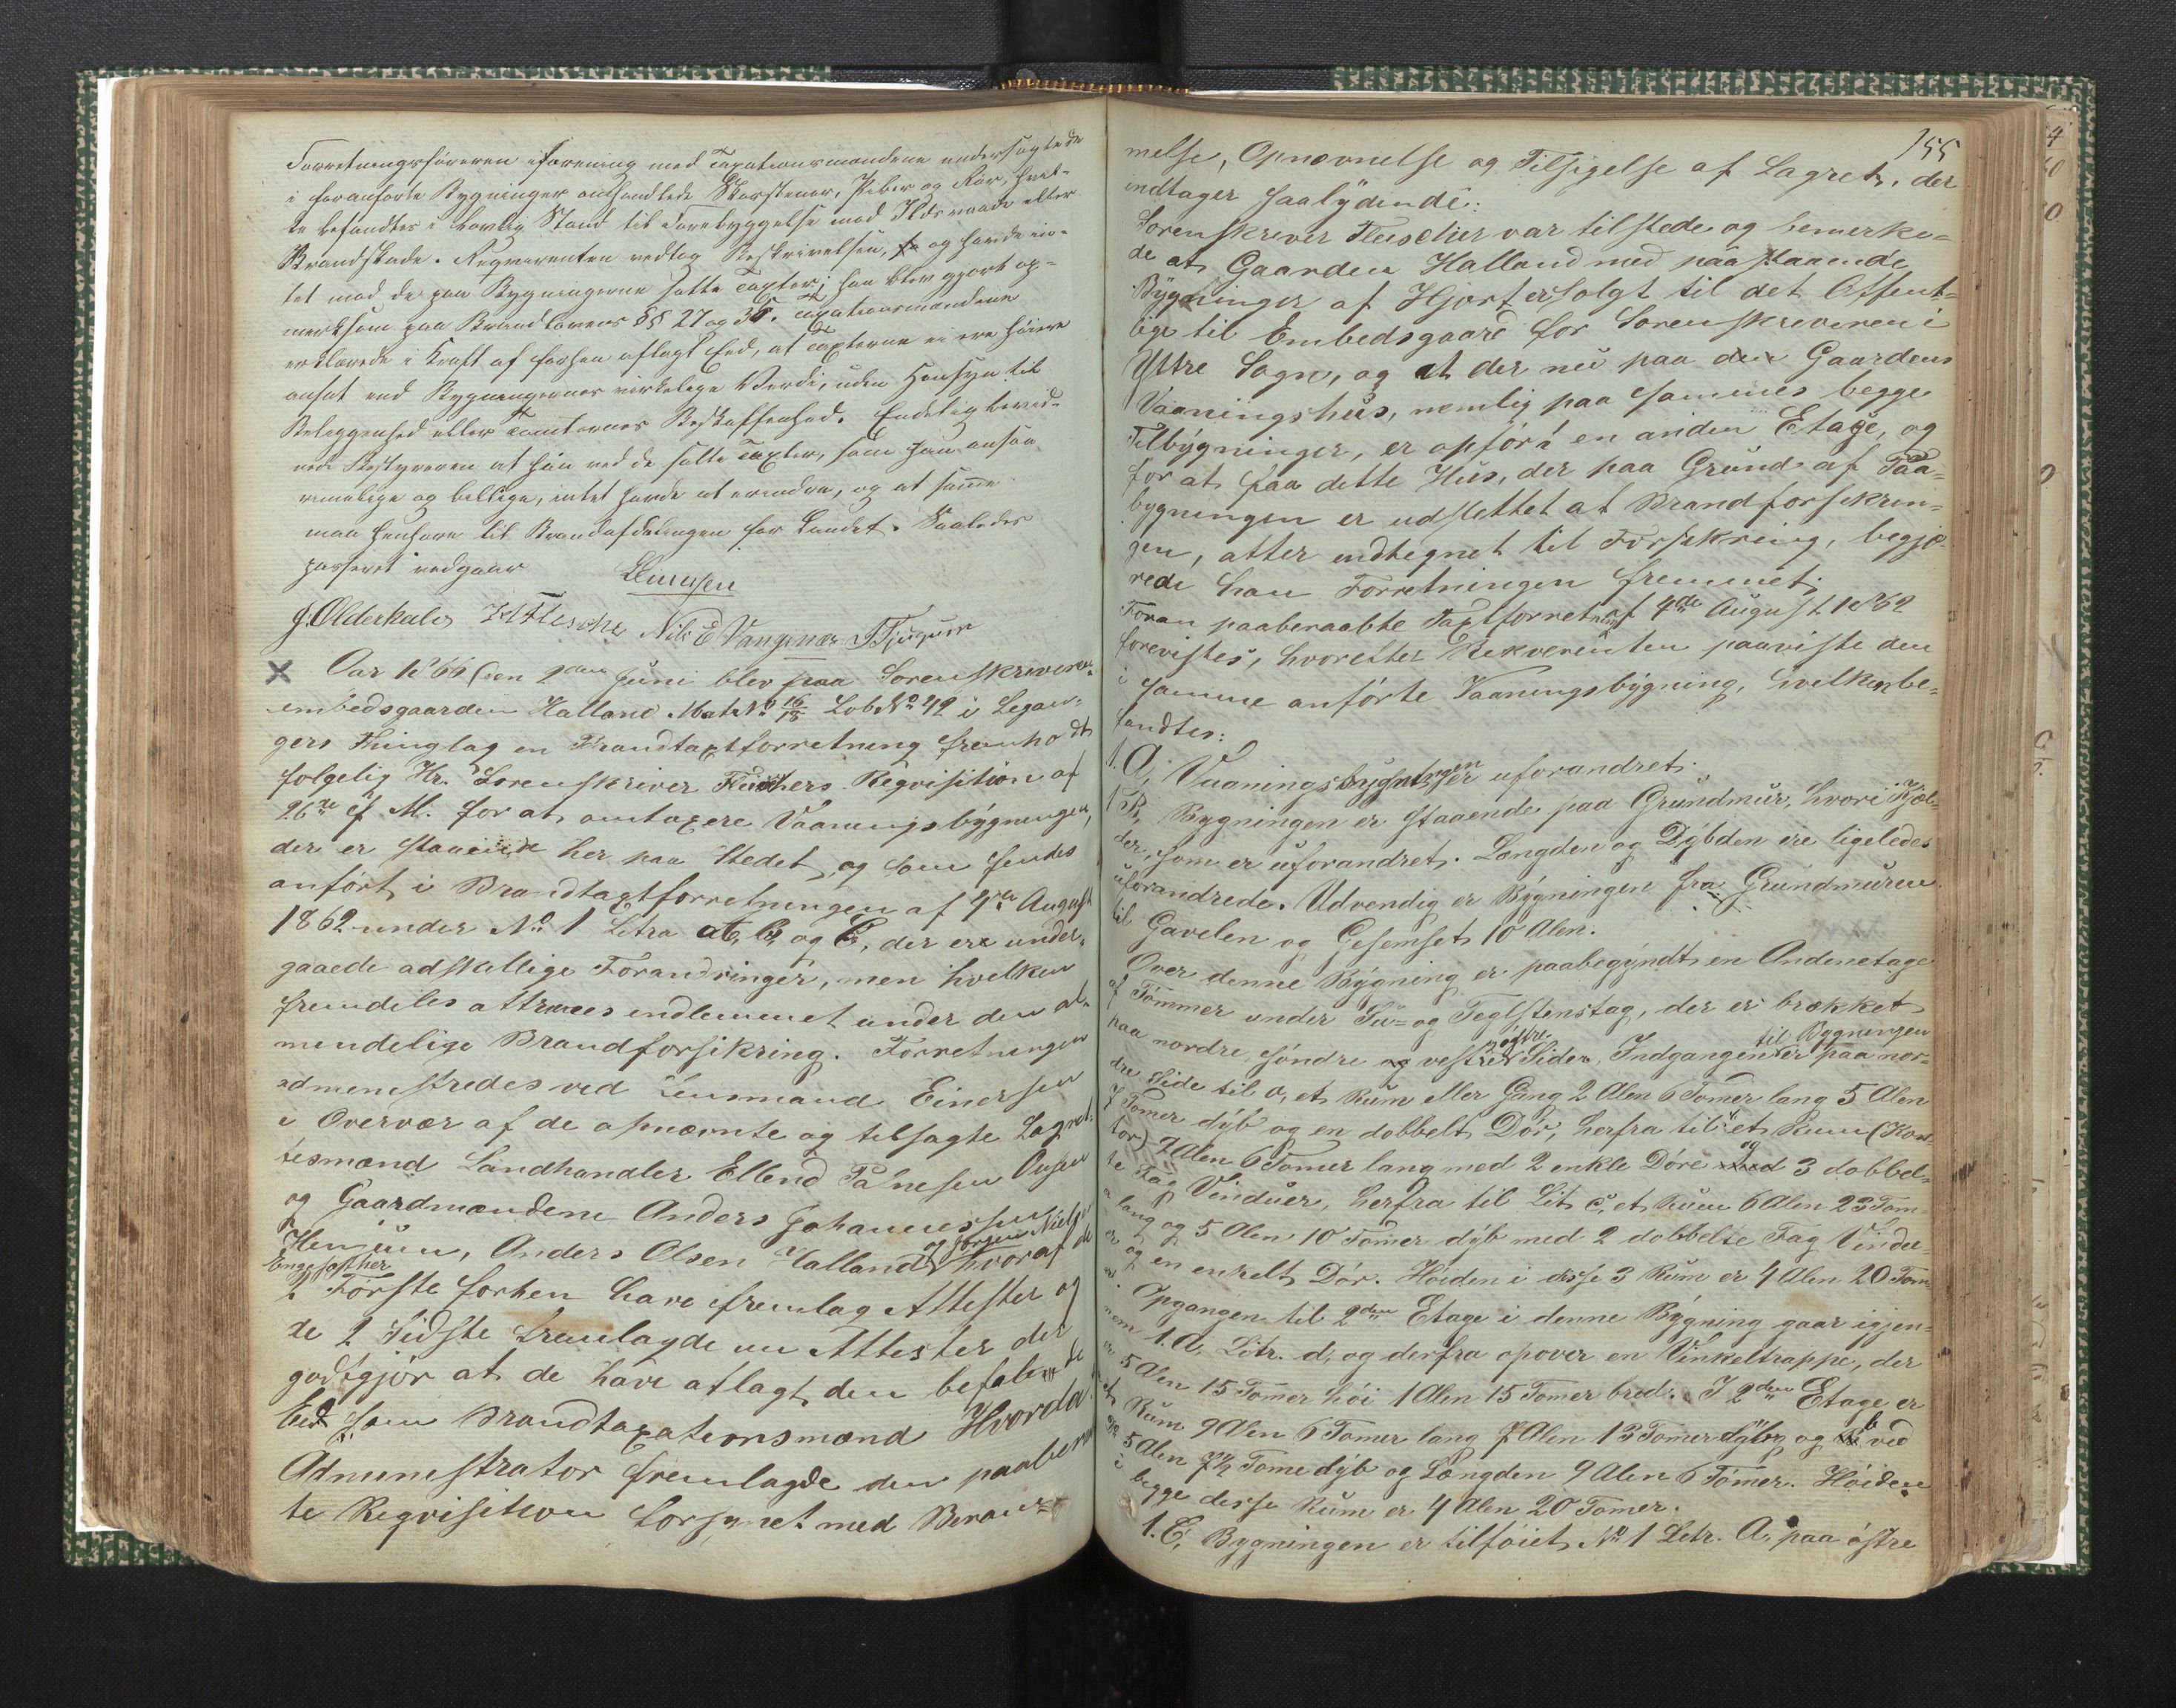 Forretningsföreren iforening med Taxationsmændene undersögte de
i foranförte Bygninger anbandlede Skorstener, Piber og Rör, hvil-
ke befandtes i lovlig Stand til Forebyggelse mod Ildsvaade eller
Brandskade. Reqvirenten vedtog Beskrivelsen, og havde in-
tet mod de paa Bygningerne satte Taxter; han blev gjort op-
merksom paa Brandlovens §§ 27 og 35. Taxationsmændene
erklærede i Kraft af forhen aflagt Eed, at Taxterne ei ere höiere
ansat end Bygningernes virkelige Værdi, uden Hensyn til
Beleggenhed eller Tomternes Beskaffenhed. Endelig bevid-
nede Bestyreren at han ved de satte Taxter, som han ansaa
rimelige og billige, intet havde at erindre, og at samme
maa henhöre til Brandafdelingen for Landet. Saaledes
passeret vedgaar
J. Olderkals Nils E Vangsnæs T Tjugum
Aar 1866 den 2den Juni blev paa Sorenskriver-
embedsgaarden Halland Mat. No 16/18 Lob No 42 i Legan-
gers Thinglag en Brandtaxtforretning fremholdt
folgelig Hr. Sorenskriver Fleischers Reqvisition af
26re f. M. for at omtaxere Vaaningsbygningen,
der er staaende her paa Stedet og som findes
anfört i Brandtaxtforretningen af 4de August
1862 under No 1 Litra a, b, og C, der er under-
gaaede adskillige Forandringer, men hvilken
fremdeles attraaes indlemmet under den al-
mindelige Brandforsikring. Forretningen
administredes ved Lensmand Einersen
i Overvær af de opnævnte og tilsagte Lagret-
tesmænd Landhandler Ellend
og Gaardmændene Anders Johannessen
Henjum, Anders Olsen Halland og Jörgen Niels
Engesæther hvoraf de
2 Förste forhen have fremlag Attester og
de 2 Sidste fremlagde nu Attester der
godtgjör at de have aflagt den befalende
Eed som Brandtaxationsmænd Hvorda
Administrator fremlagde den paaberaab
te Reqvisition forsynet med Beram-
155
melse, Opnævnelse og Tilsigelse af Lagret, der
indtager saalÿdende:
Sorenskriver Fleischer var tilstede og bemerke-
de at Gaarden Halland med paa staaende
Bygninger af Hjort er solgt til det Offent-
lige til Embedsgaard for Sorenskriveren i
Yttre Sogn, og at der nu paa den Gaardens
Vaaningshus, nemlig paa sammes begge
Tilbygninger, er opfört en anden Etage, og
for at faa dette Hus, der paa Grund af Paa-
bygningen er udslettet at Brandforsikrin-
gen, atter indtegnet til Forsikring, begjæ-
rede han Forretningen fremmet.
Foran paaberaabte Taxtforretning af 4de August 1862
forevistes, hvorefter Rekverenten paaviste den
i samme anförte Vaaningsbygning, hvilken be-
fandtes:
1. A, Vaaningsbygningen uforandret.
1 B, Bygningen er staaende paa Grundmur, hvori Kjæl-
der, som er uforandret. Længden og Dÿbden ere ligeledes
uforandrede. Udvendig er Bÿgningen fra Grundmuren
til Gavelen og Gesemset 10 Alen.
Over denne Bygning er paabegyndt en Andenetage
af Tömmer under Su- og Teglstenstag, der er brækket
paa nordre, söndre og vestre östre Sider. Indgangen til Bygningen er paa nor-
dre Side til a, et Rum eller Gang 2 Alen 6 Tommer lang 5 Alen
7 Tommer dÿb og en dobbelt Dör, herfra til et Rum (Kon-
tor) 9 Alen 6 Tommer lang med 2 enkle Döre og 3 dobbel-
te Fag Vinduer, herfra til Lit. c, et Rum 6 Alen 23 Tom-
lang og 5 Alen 10 Tommer dÿb med 2 dobbelte Fag Vindu-
er og en enkelt Dör. Höiden i disse 3 Rum er 4 Alen 20 Tom-
Opgangen til 2den Etage i denne Bÿgning gaar igjen-
nem 1. A. Litr. d, og derfra opover en Vinkeltrappe, der
er 5 Alen 15 Tommer höi 1 Alen 15 Tommer bred. I 2den Etage er
et Rum 9 Alen 6 Tommer lang 7 Alen 13 Tommer dÿb og b ved
5 Alen 7½ Tomme dÿb og Længden 9 Alen 6 Tommer. Höiden
i begge disse Rum er 4 Alen 20 Tommer.
1. C, Bygningen er tilföiet No 1 Litr. A. paa östre